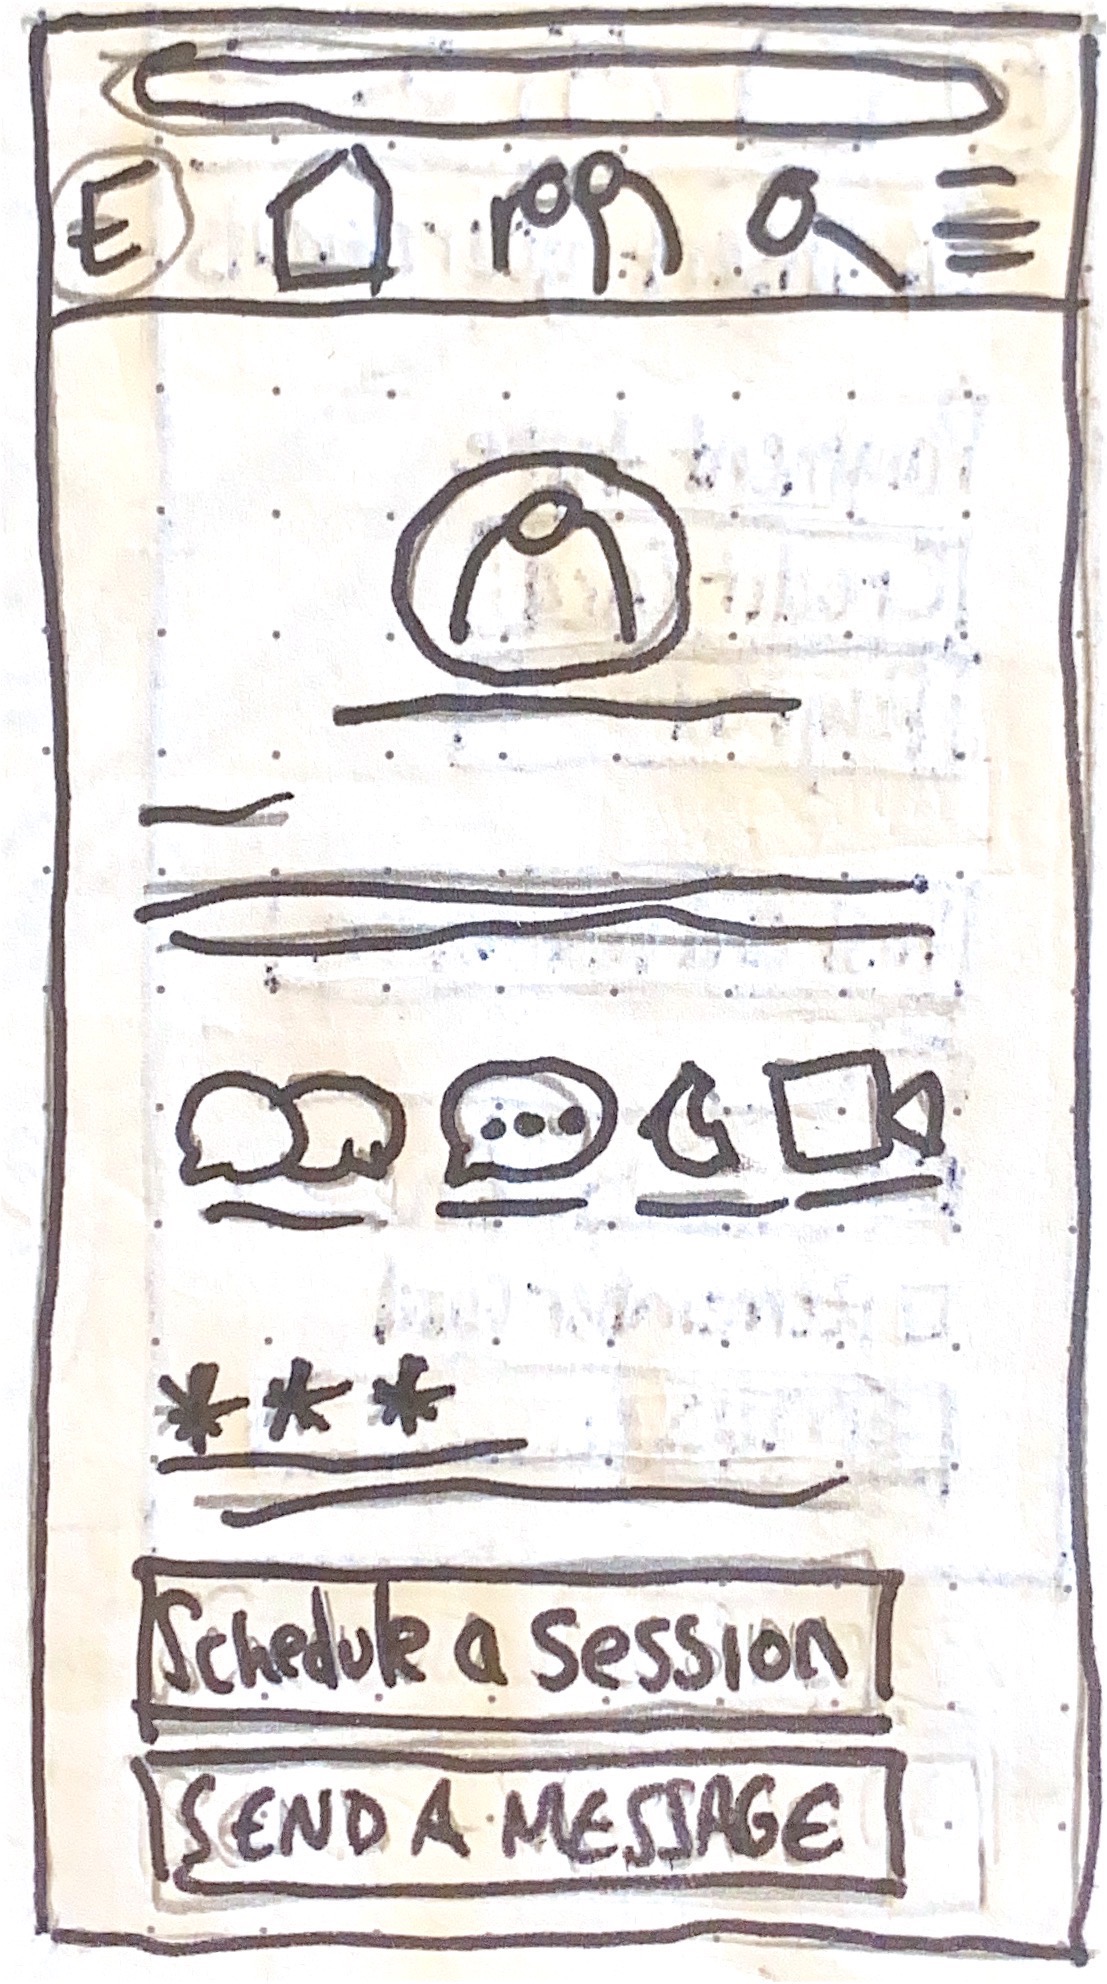 E
Schedule a Session
SEND A MESSAGE